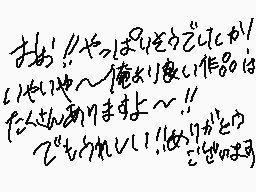 おお!!やっぱりそうでしたか!
いやいや〜俺より良い作品は
たくさんありますよ〜!!
でもうれしい!!ありがとう
ございます